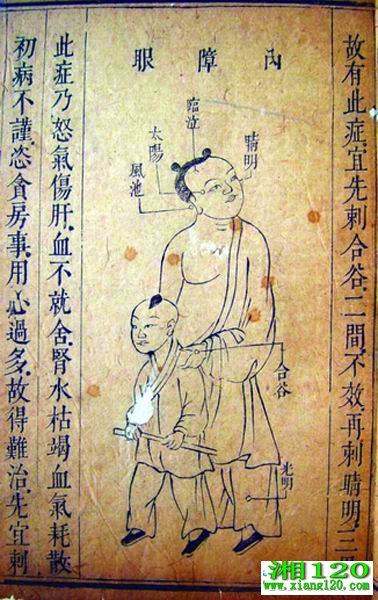 故有此症,宜先刺合谷,二間,不效,再刺睛明,三
內障眼
睛明
臨泣
太陽
風池
合谷
光明
此症乃怒氣傷肝,血不就舍,腎水枯竭,血氣耗散
初病不謹,恣貪房事,用心過多,故得難治,先宜刺
湘120
www.xiang120.com